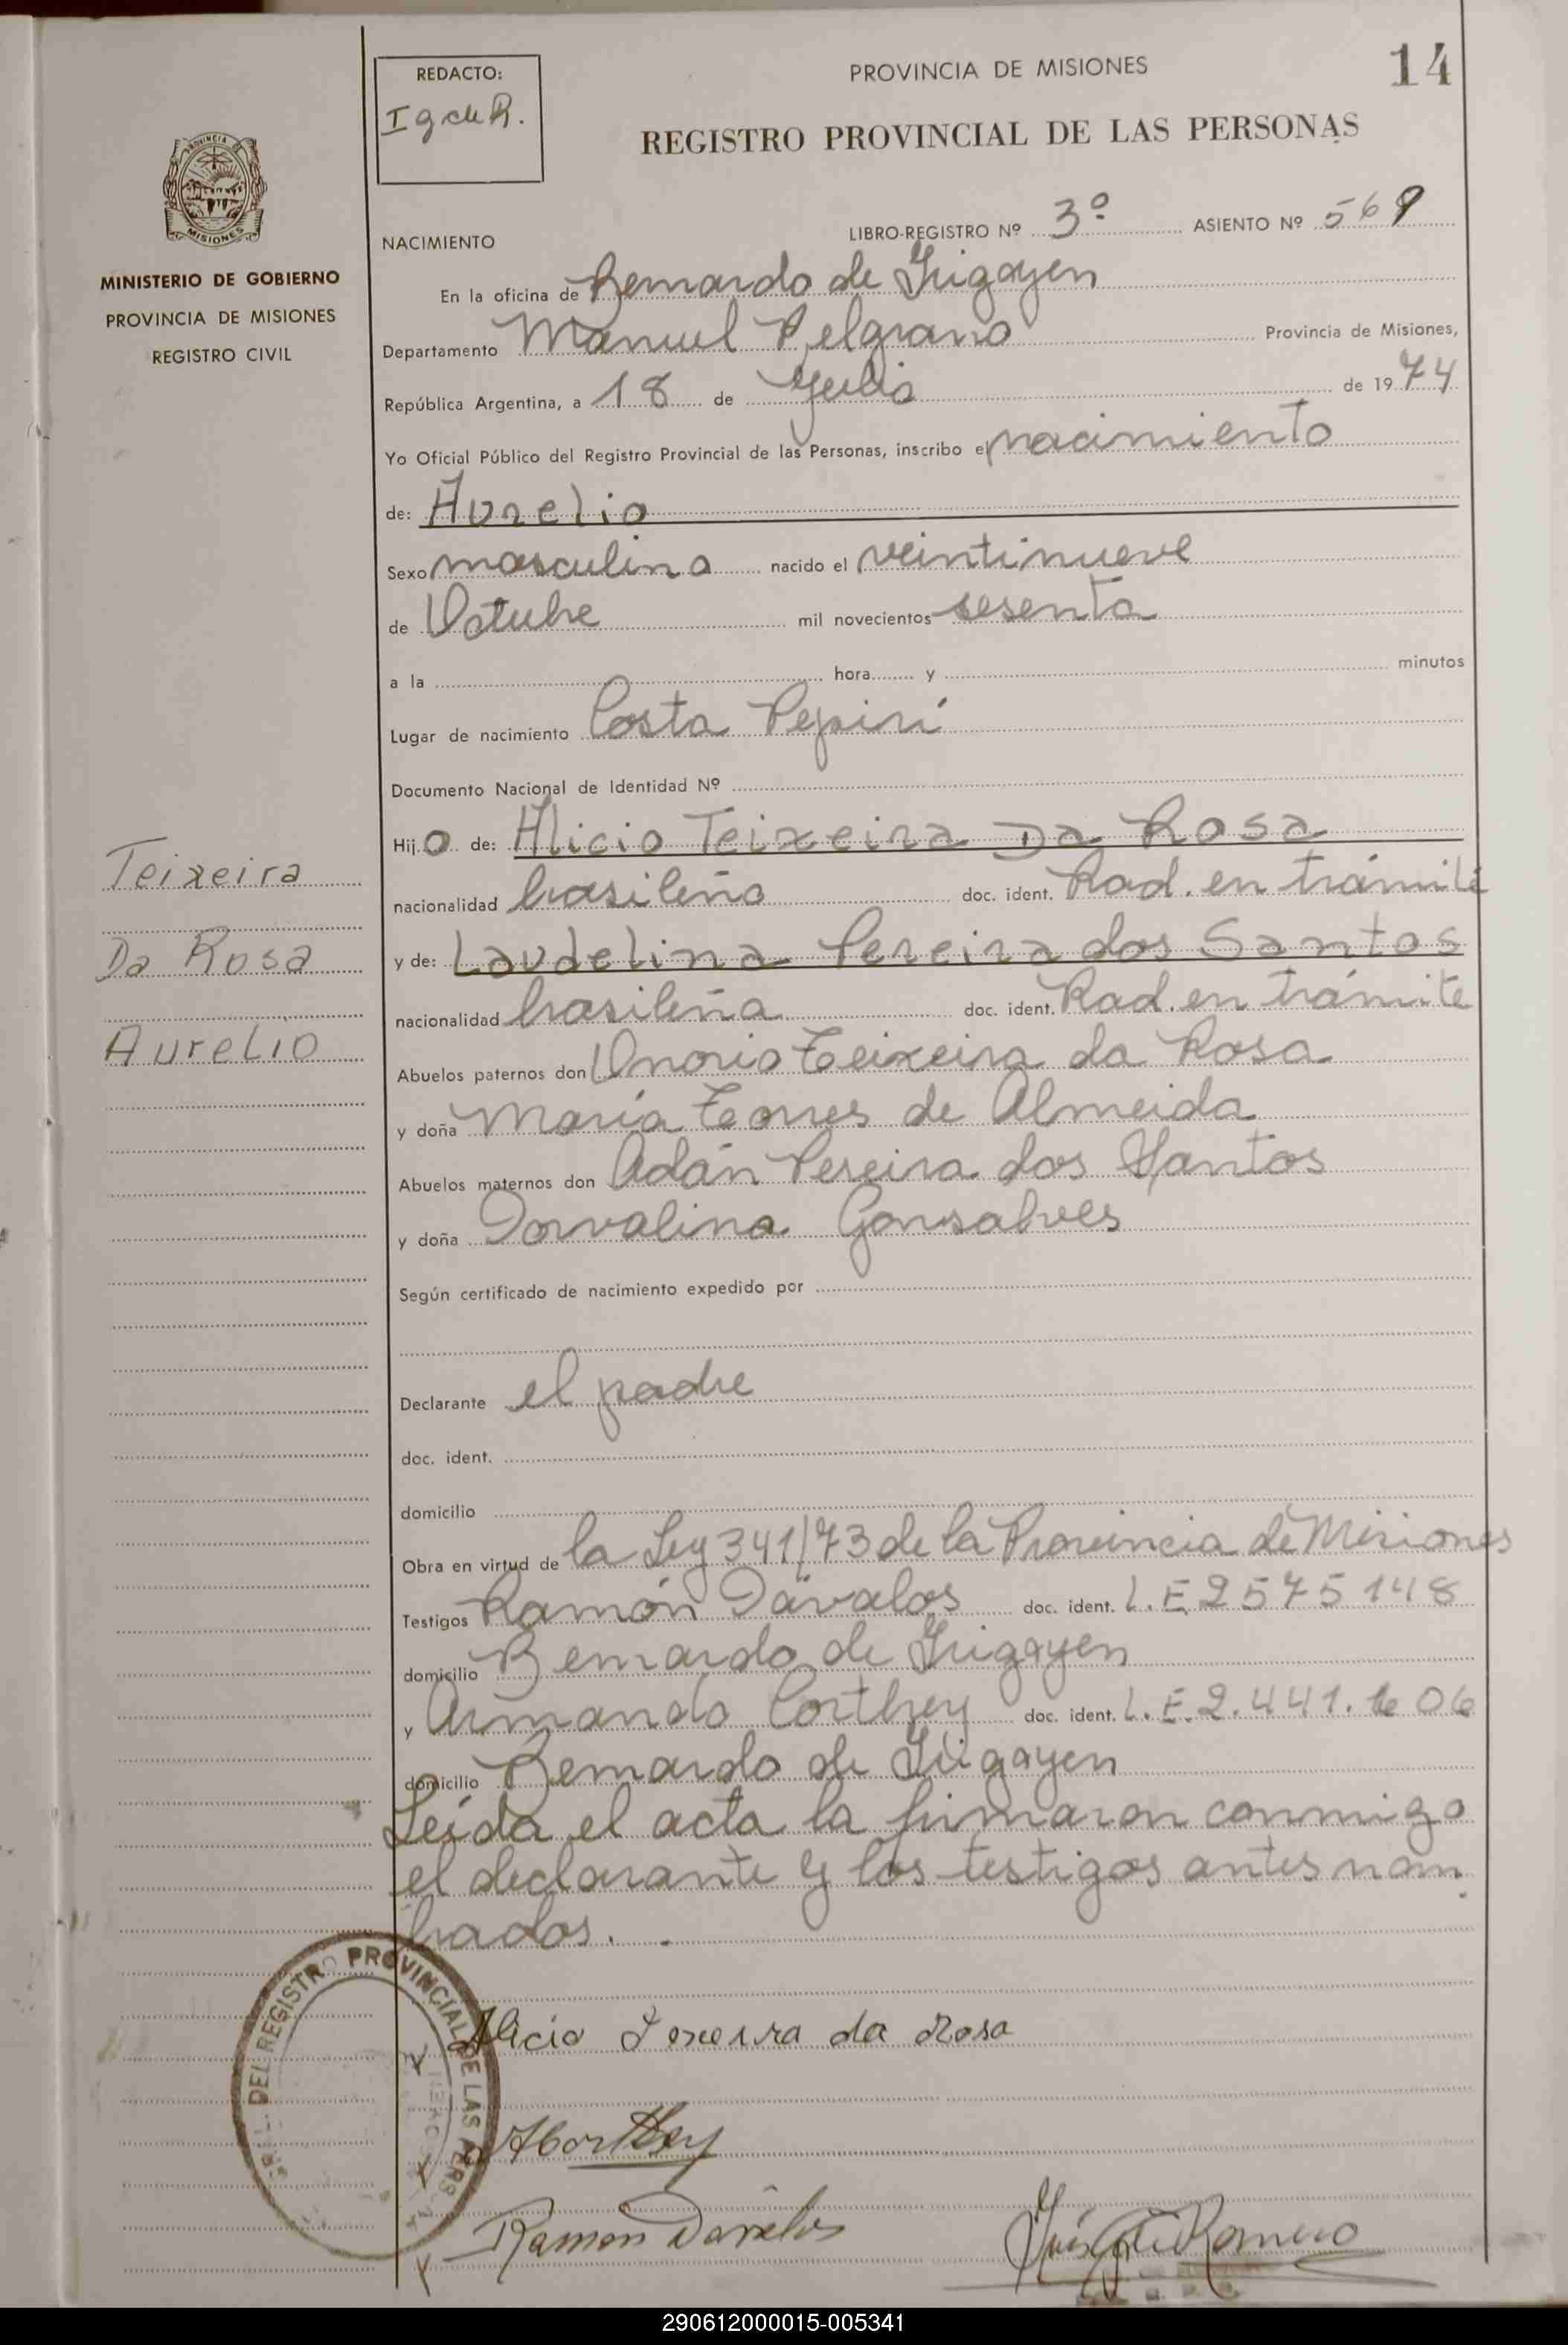 14
PROVINCIA DE MISIONES
REGISTRO PROVINCIAL DE LAS PERSONAS
REDACTO:
I g de R.
PROVINCIA DE
MISIONES
MINISTERIO DE GOBIERNO
PROVINCIA DE MISIONES
REGISTRO CIVIL
NACIMIENTO LIBRO-REGISTRO Nº 3º ASIENTO Nº 569
En la oficina de Bernardo de Irigoyen
Departamento Manuel Belgrano Provincia de Misiones,
República Argentina, a 18 de Julio de 1974
Yo Oficial Público del Registro Provincial de las Personas, inscribo el nacimiento
de: Aurelio
Sexo masculino nacido el veintinueve
de Octubre mil novecientos sesenta
a la hora y minutos
Lugar de nacimiento Costa Pepirí
Documento Nacional de Identidad Nº
Hijo de: Alicio Teixeira Da Rosa
nacionalidad brasileño doc. ident. Rad. en trámite
y de: Laudelina Pereira dos Santos
nacionalidad brasileña doc. ident. Rad. en trámite
Abuelos paternos don Onorio Teixeira da Rosa
y doña María Torres de Almeida
Abuelos maternos don Adán Pereira dos Santos
y doña Dorvalina Gonsalves
Según certificado de nacimiento expedido por
Declarante el padre
doc. ident.
domicilio
Obra en virtud de la Ley 341/73 de la Provincia de Misiones
Testigos Ramón Dávalos doc. ident. L.E 2575148
domicilio Bernardo de Irigoyen
y Armando Corthey doc. ident. L.E. 2.441.606
domicilio Bernardo de Irigoyen
Leída el acta la firmaron conmigo
el declarante y los testigos antes nom
brados.
Teixeira
Da Rosa
Aurelio
DEL REGISTRO PROVINCIAL DE LAS PERS
Alicio Texeira da Rosa
ACorthey
Ramon Davalos
Inés G de Romero
290612000015-005341